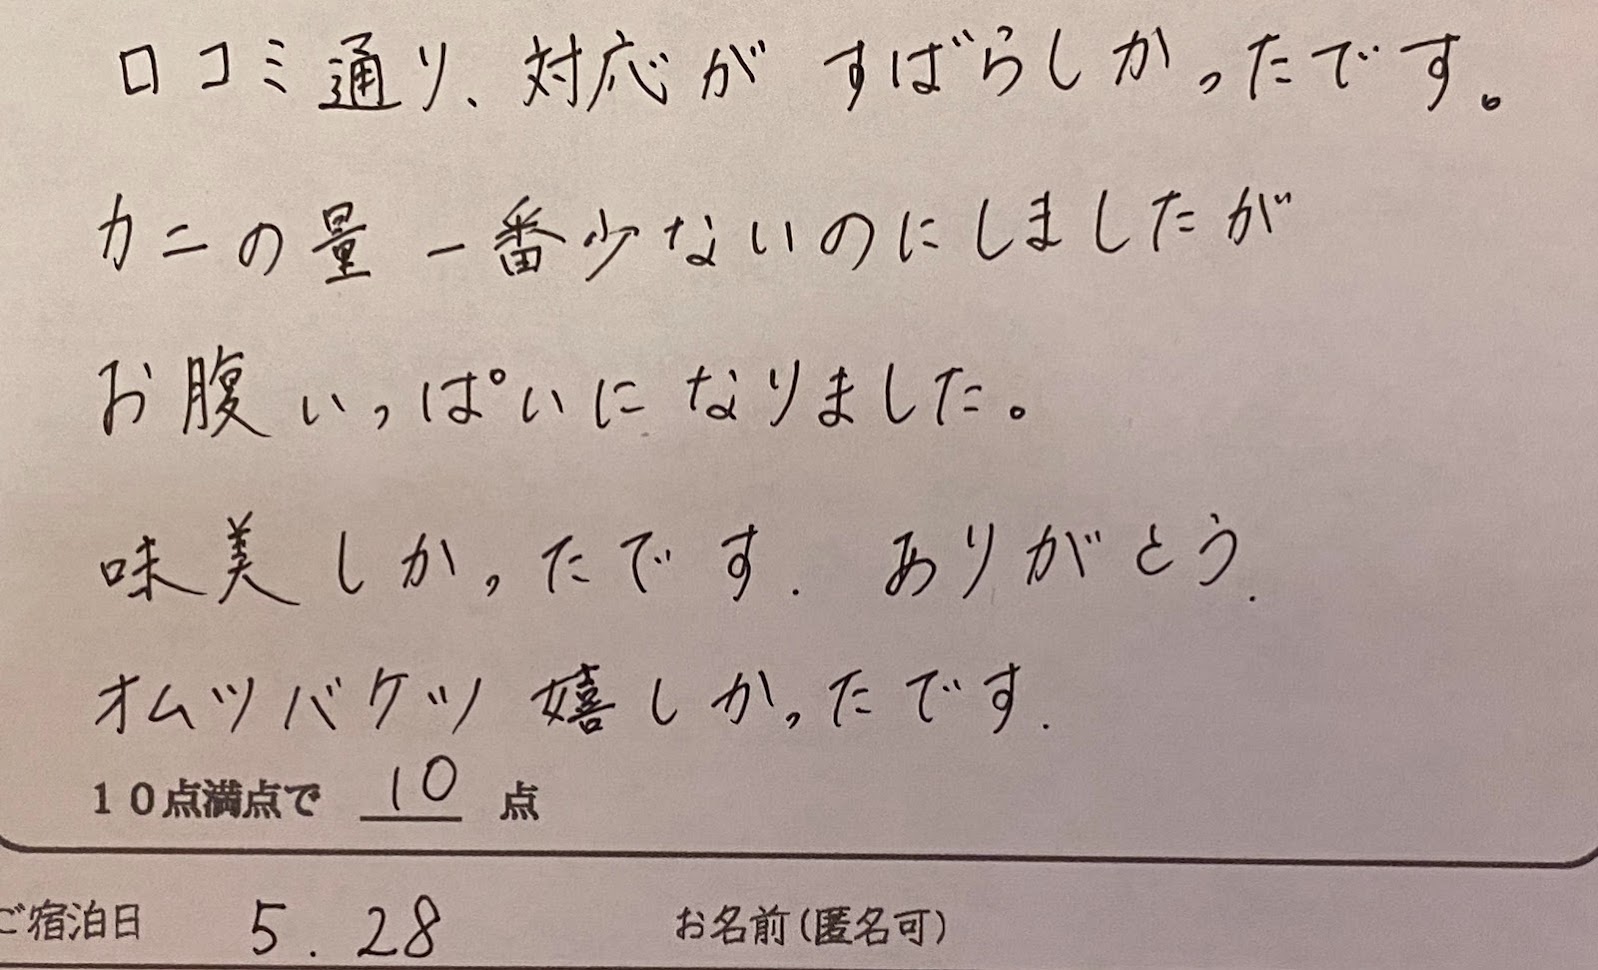 口コミ通り、対応がすばらしかったです。
カニの量一番少ないのにしましたが
お腹いっぱいになりました。
味美しかったです. ありがとう.
オムツバケツ嬉しかったです.
10点満点で 10 点
ご宿泊日 5.28 お名前(匿名可)